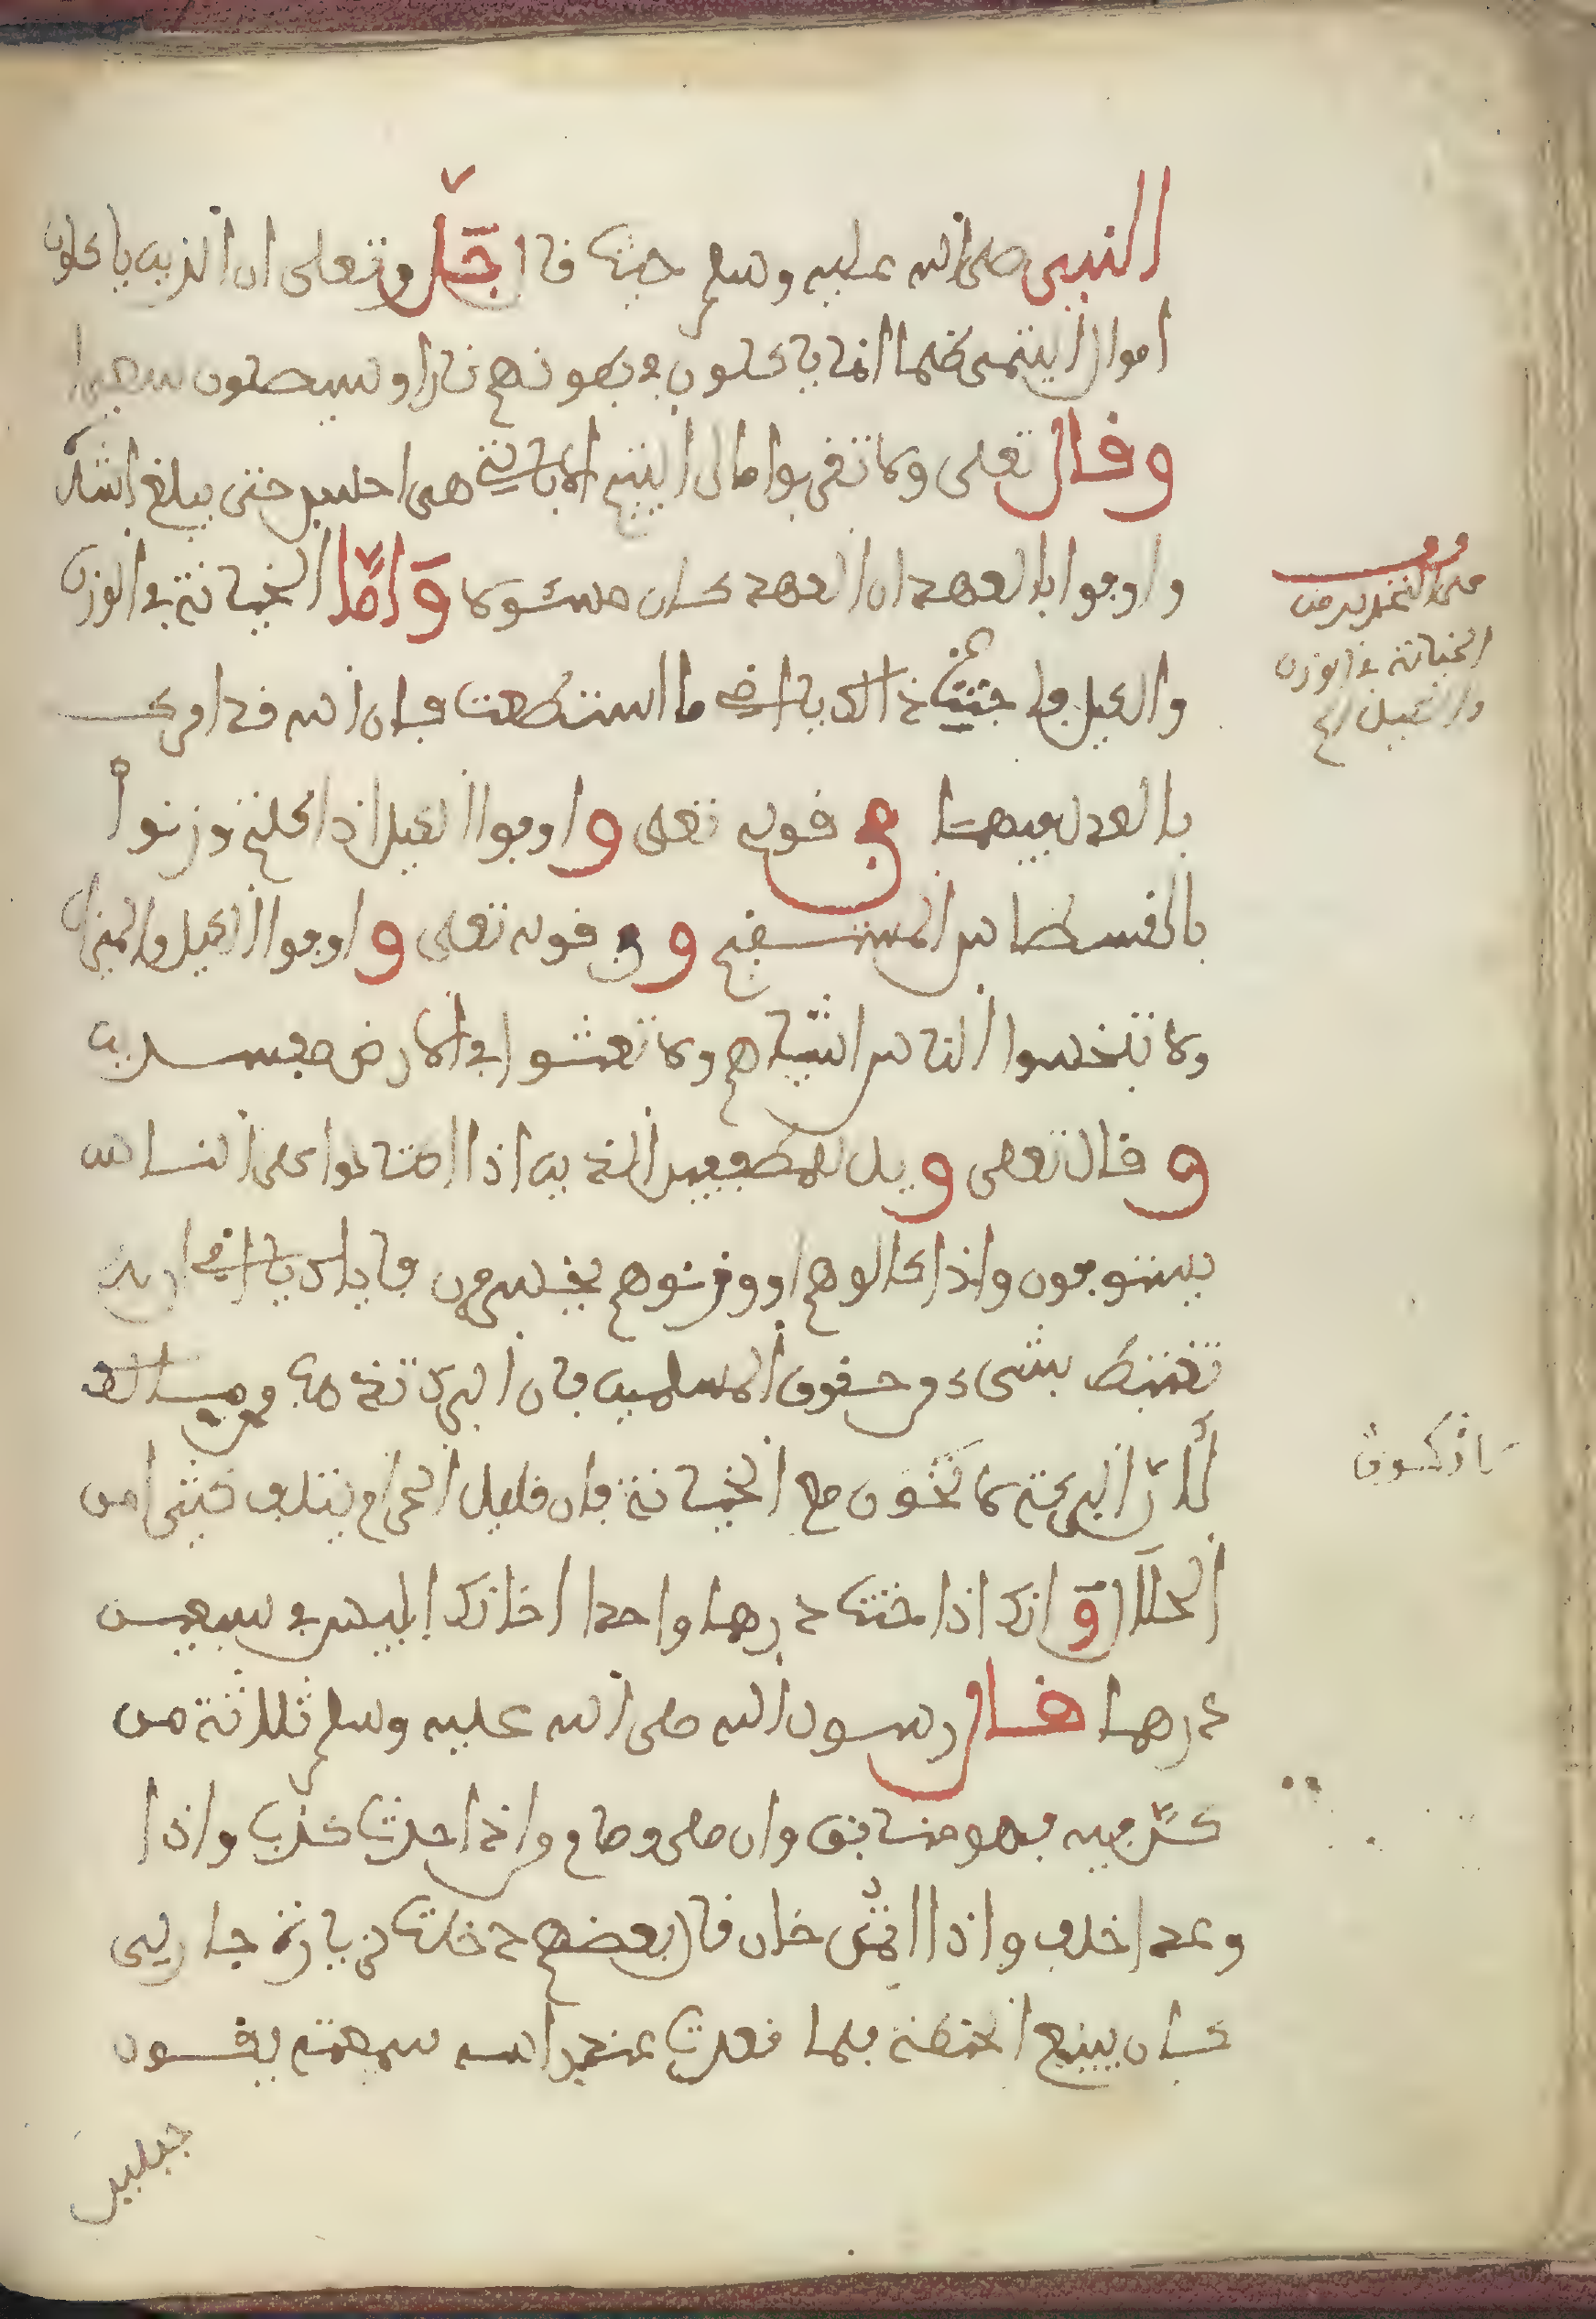 النبي صلى الله عليه وسلم حيث قال جل وتعلى ان الذين ياكلون
اموال اليتمى ظلما انما ياكلون في بطونهم نارا وسيصلون سعيرا
وقال تعلى ولا تقربوا مال اليتيم الا بالتي هي احسن حتى يبلغ اشده
واوفوا بالعهد ان العهد كان مسئولا واما الخيانة في الوزن
والكيل يا اخي ما استطعت فان الله قد امرك
بالعدل فيهما في قوله تعلى واوفوا الكيل اذا كلتم وزنوا
بالقسطاس المستقيم وفي قوله تعلى واوفوا الكيل والميزان
ولا تبخسوا الناس اشياهم ولا تعثوا في الارض مفسدين
وقال تعلى ويل للمطففين الذين اذا اكتالوا على الناس
يستوفون واذا كالوهم او وزنوهم يخسرون فاياك يا اخي ان
تغتبط بشيء من حقوق المسلمين فان البركة تذهب من مالك
لان البركة لا تكون مع الخيانة فان قليل الحرام يتلف كثيرا من
الحلال وانك اذا خنت درهما واحدا اخانك ابليس في سبعين
درهما قال رسول الله صلى الله عليه وسلم ثلاثة من
كن فيه فهو منافق وان صلى وصام واذا حدث كذب واذا
وعد اخلف واذا ائتمن خان قال بعضهم دخلت في زيارة جار لي
كان يبيع الحنطة فلما قعدت عند راسه سمعته يقول
جبلين
على التحذير من
الخيانة في الوزن
والكيل الخ